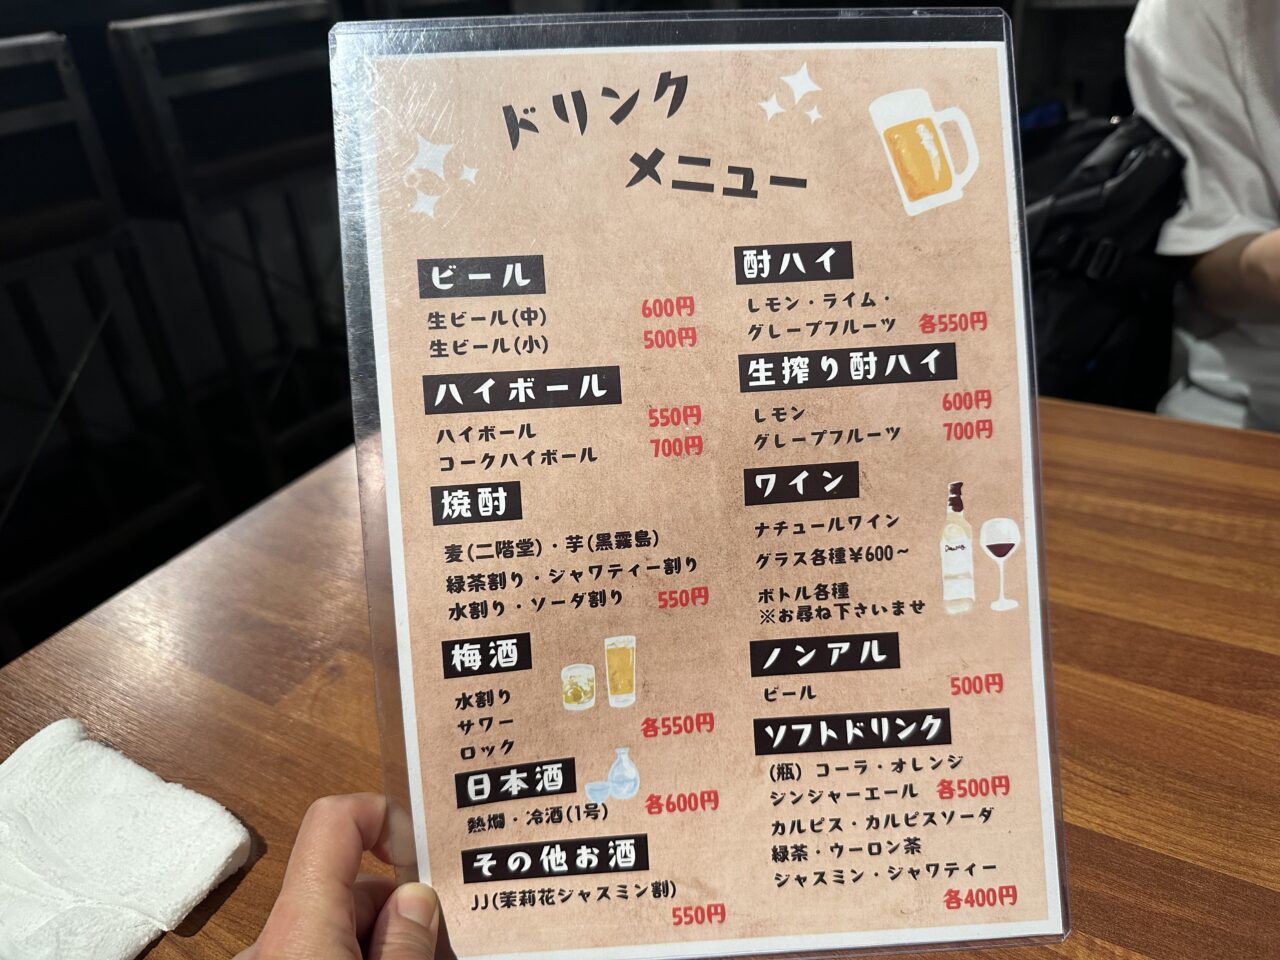 ドリンク
メニュー
ビール
生ビール(中) 600円
生ビール(小) 500円
ハイボール
ハイボール 550円
コークハイボール 700円
焼酎
麦(二階堂)・芋(黒霧島)
緑茶割り・ジャワティー割り
水割り・ソーダ割り 550円
梅酒
水割り
サワー 各550円
ロック
日本酒
熱燗・冷酒(1号) 各600円
その他お酒
JJ(茉莉花ジャスミン割)
550円
酎ハイ
レモン・ライム・
グレープフルーツ 各550円
生搾り酎ハイ
レモン 600円
グレープフルーツ 700円
ワイン
ナチュールワイン
グラス各種¥600~
ボトル各種
※お尋ね下さいませ
ノンアル
ビール 500円
ソフトドリンク
(瓶) コーラ・オレンジ
ジンジャーエール 各500円
カルピス・カルピスソーダ
緑茶・ウーロン茶
ジャスミン・ジャワティー
各400円